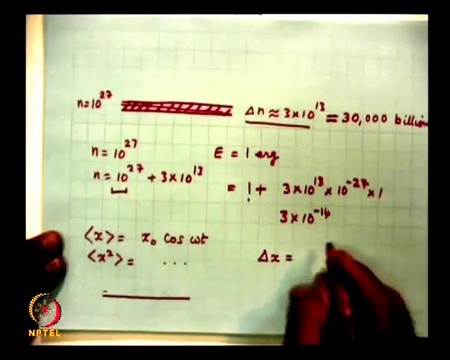 n=10²⁷ Δn ≈ 3×10¹³ = 30,000 billion
n = 10²⁷ E = 1 erg
n = 10²⁷ + 3×10¹³ = 1 + 3×10¹³×10⁻²⁷×1
3×10⁻¹⁴
⟨x⟩ = x₀ cos ωt
⟨x²⟩ = ... Δx =
NPTEL